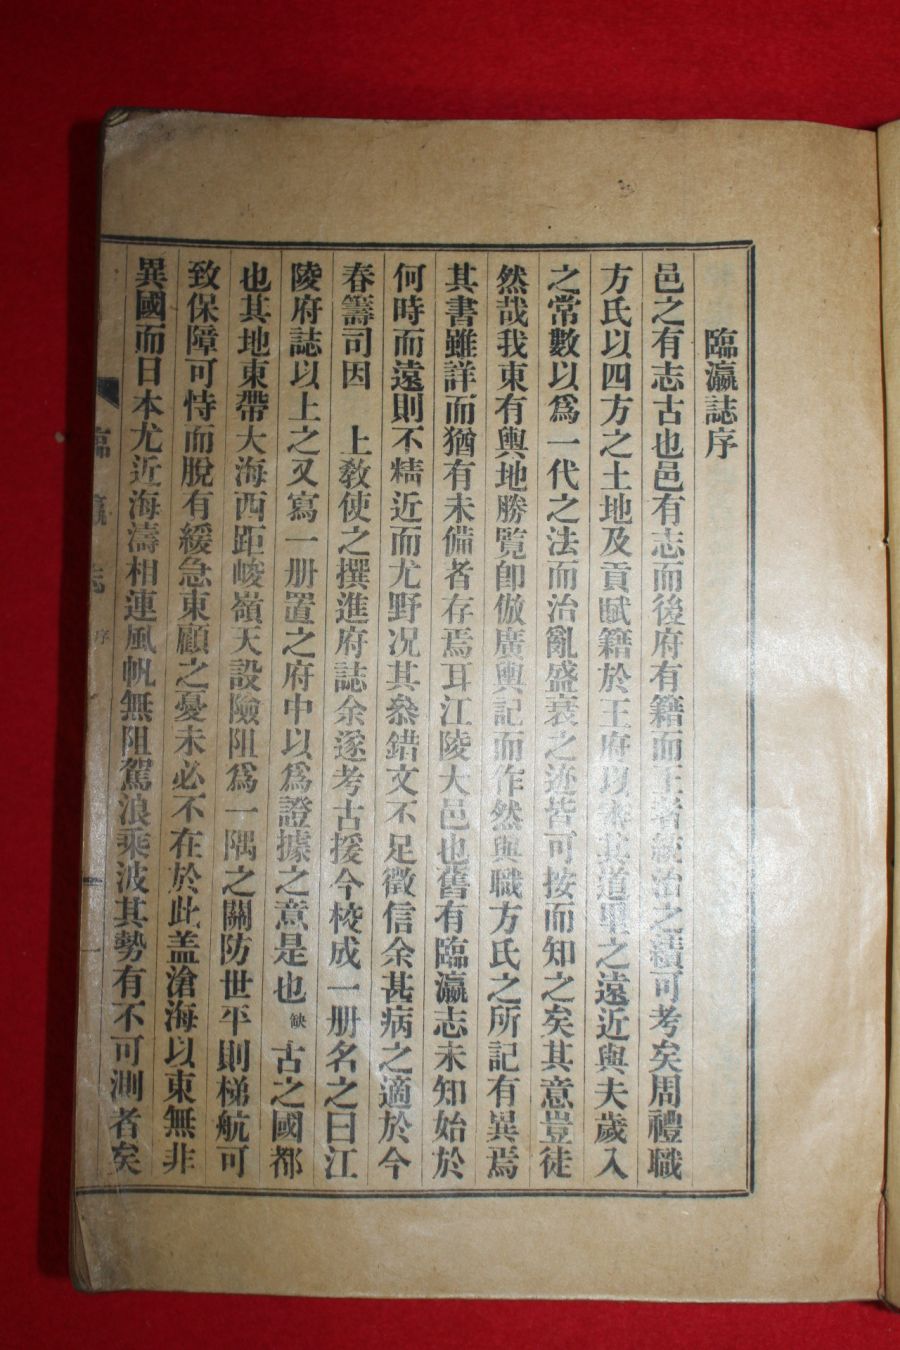 臨瀛誌序
邑之有志古也邑有志而後府有籍而王者統治之績可考矣周禮職
方氏以四方之土地及貢賦籍於王府以審其道里之遠近與夫歲入
之常數以爲一代之法而治亂盛衰之迹皆可按而知之矣其意豈徒
然哉我東有輿地勝覽卽倣廣輿記而作然與職方氏之所記有異焉
其書雖詳而猶有未備者存焉耳江陵大邑也舊有臨瀛志未知始於
何時而遠則不精近而尤野况其叅錯文不足徵信余甚病之適於今
春籌司因 上敎使之撰進府誌余遂考古援今校成一册名之曰江
陵府誌以上之又寫一册置之府中以爲證據之意是也 缺 古之國都
也其地東帶大海西距峻嶺天設險阻爲一隅之關防世平則梯航可
致保障可恃而脫有緩急東顧之憂未必不在於此盖滄海以東無非
異國而日本尤近海濤相連風帆無阻駕浪乘波其勢有不可測者矣
臨瀛誌 序 一